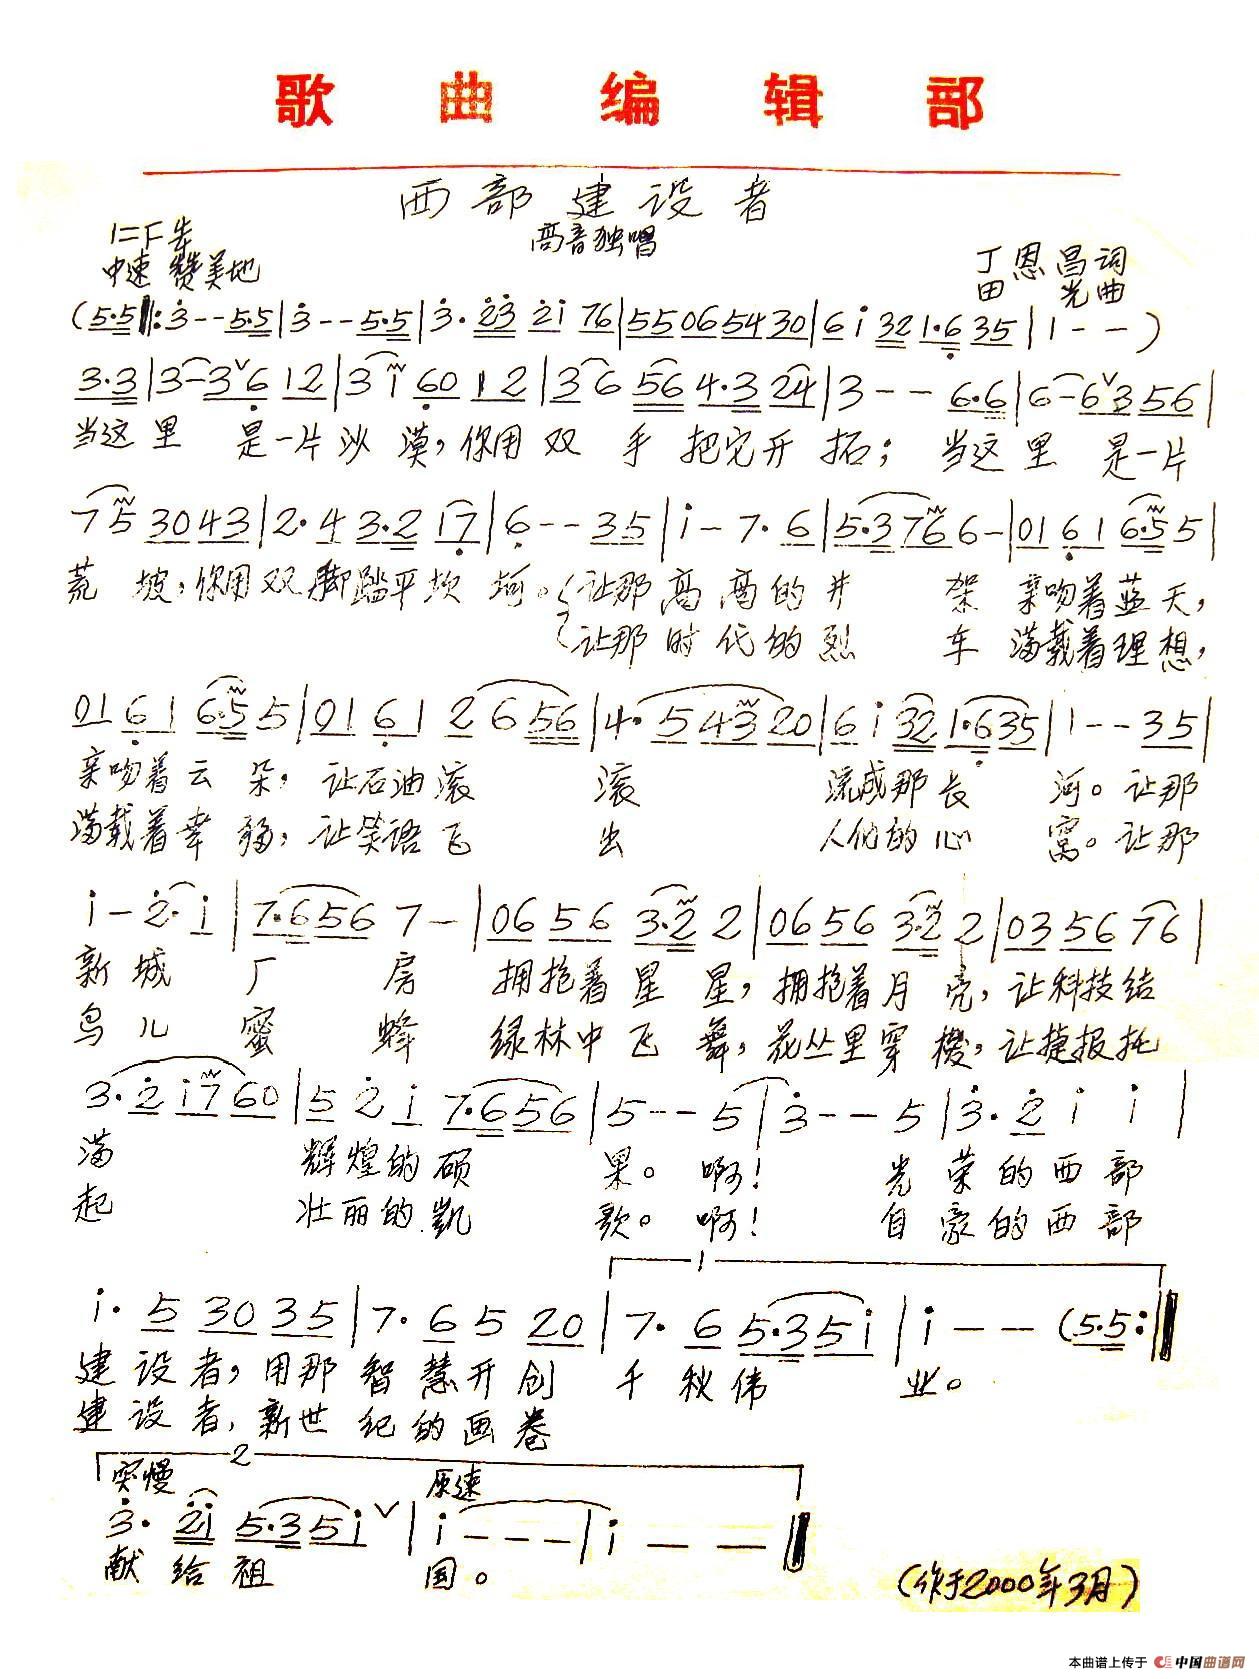 歌曲编辑部
西部建设者
高音独唱
1=F 4/4
中速 赞美地
丁恩昌词
田光曲
(5·5‖:3--5·5|3--5·5|3·23 21 76|55065430|6i 321·635|1--)
3·3|3-3612|3i6012|36 564·324|3--6·6|6-6356|
当这里 是一片沙漠,你用双手把它开拓;当这里是一片
75 3043|2·43·217|6--35|i-7·6|5·3766-|01616·55|
荒坡,你用双脚踏平坎坷。让那高高的井架 亲吻着蓝天,
让那时代的烈车 满载着理想,
01616·55|01612656|4·54320|6i321·635|1--35|
亲吻着云朵,让石油滚滚 流成那长河。让那
满载着幸福,让笑语飞出 人们的心窝。让那
i-2·i|7·6567-|06563·22|06563·22|035676|
新城厂房 拥抱着星星,拥抱着月亮,让科技结
鸟儿蜜蜂 绿林中飞舞,花丛里穿梭,让捷报托
3·2i760|52i7·656|5--5|3--5|3·2ii|
满 辉煌的硕果。啊! 光荣的西部
起 壮丽的凯歌。啊! 自豪的西部
1
i·53035|7·6520|7·65·35i|i--(5·5:‖
建设者,用那智慧开创千秋伟业。
建设者,新世纪的画卷
2
突慢 原速
3·2i5·35i|i---|i--‖
献给祖国。
(作于2000年3月)
本曲谱上传于 中国曲谱网